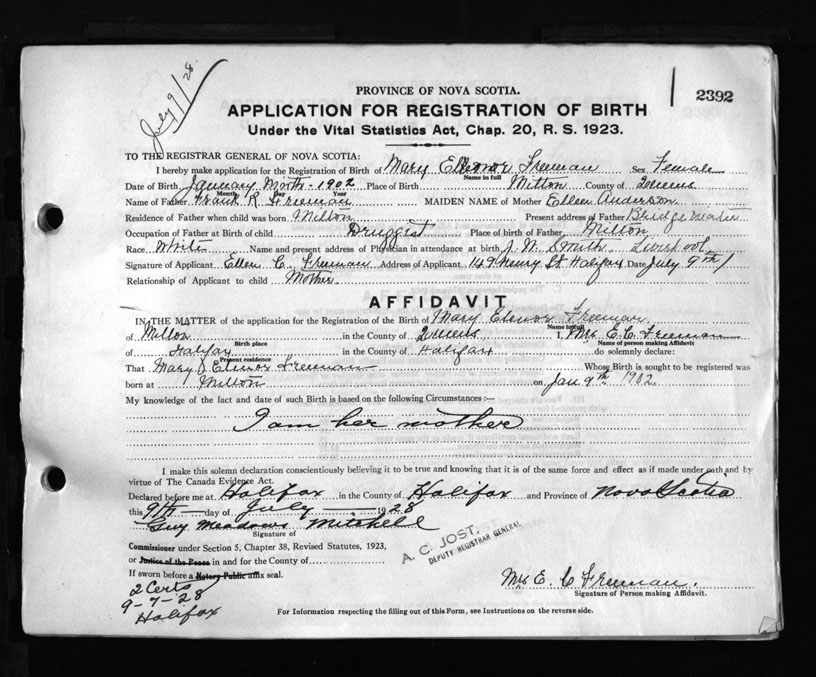 July 9/28
2392
PROVINCE OF NOVA SCOTIA.
APPLICATION FOR REGISTRATION OF BIRTH
Under the Vital Statistics Act, Chap. 20, R. S. 1923.
TO THE REGISTRAR GENERAL OF NOVA SCOTIA:
I hereby make application for the Registration of Birth of Mary Elenor Freeman Sex Female
Name in full
Date of Birth January 9th - 1902 Place of Birth Milton County of Queens
Month Day Year
Name of Father Frank R. Freeman MAIDEN NAME of Mother Ellen Anderson
Residence of Father when child was born Milton Present address of Father Bridgewater
Occupation of Father at Birth of child Druggist Place of birth of Father Milton
Race White Name and present address of Physician in attendance at birth J. W. Smith Liverpool
Signature of Applicant Ellen C. Freeman Address of Applicant 149 Henry St. Halifax Date July 9th/
Relationship of Applicant to child Mother
AFFIDAVIT
IN THE MATTER of the application for the Registration of the Birth of Mary Elenor Freeman
Name in full
of Milton in the County of Queens I, Mrs E. C. Freeman
Birth place Name of person making Affidavit
of Halifax in the County of Halifax do solemnly declare:
Present residence
That Mary Elenor Freeman Whose Birth is sought to be registered was
born at Milton on Jan 9th 1902.
My knowledge of the fact and date of such Birth is based on the following Circumstances :—
I am her mother
I make this solemn declaration conscientiously believing it to be true and knowing that it is of the same force and effect as if made under oath and by
virtue of The Canada Evidence Act.
Declared before me at Halifax in the County of Halifax and Province of Nova Scotia
this 9th day of July 1928
Guy Meadows Mitchell
Signature of
A. C. JOST,
DEPUTY REGISTRAR GENERAL
Commissioner under Section 5, Chapter 38, Revised Statutes, 1923,
or Justice of the Peace in and for the County of
If sworn before a Notary Public affix seal.
2 Certs
9-7-28
Halifax
Mrs E. C. Freeman.
Signature of Person making Affidavit.
For Information respecting the filling out of this Form, see Instructions on the reverse side.